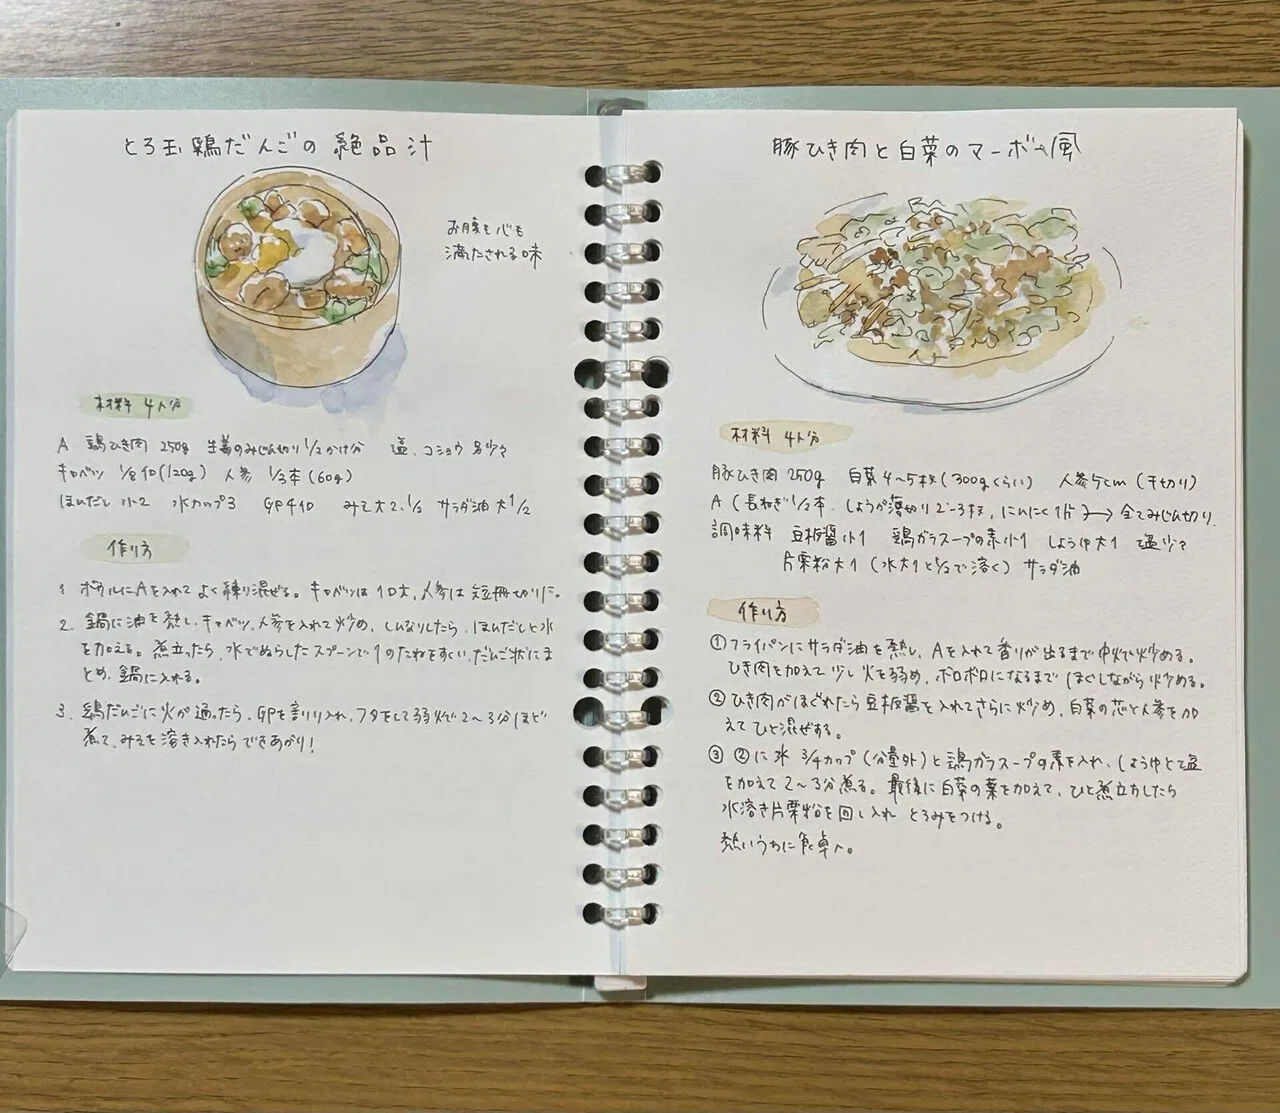 とろ玉鶏だんごの絶品汁
お腹も心も
満たされる味
材料 4人分
A 鶏ひき肉 250g 生姜のみじん切り 1/2かけ分 塩、コショウ 各少々
キャベツ 1/8コ(120g) 人参 1/3本(60g)
ほんだし 小2 水カップ3 GP4コ みそ大2.1/2 サラダ油 大1/2
作り方
1 ボウルにAを入れて よく練り混ぜる。キャベツは 1口大、人参は 短冊切りに。
2. 鍋に油を熱し、キャベツ、人参を入れて炒め、しんなりしたら、ほんだしと水
を加える。煮立ったら、水でぬらしたスプーンで1のたねをすくい、だんご状にま
とめ、鍋に入れる。
3. 鶏だんごに火が通ったら、GPを割り入れ、フタをして弱火で2〜3分ほど
煮て、みそを溶き入れたらできあがり!
豚ひき肉と白菜のマーボー風
材料 4人分
豚ひき肉 250g 白菜 4〜5枚(300gくらい) 人参5cm(千切り)
A(長ねぎ1/2本、しょうが薄切り2〜3枚、にんにく1片)→全てみじん切り
調味料 豆板醤小1 鶏ガラスープの素小1 しょうゆ大1 塩少々
片栗粉大1(水大1と1/2で溶く) サラダ油
作り方
①フライパンにサラダ油を熱し、Aを入れて香りが出るまで中火で炒める。
ひき肉を加えて少し火を弱め、ボロボロになるまで ほぐしながら炒める。
②ひき肉がほぐれたら豆板醤を入れてさらに炒め、白菜の芯と人参を加
えてひと混ぜする。
③ ②に水 3/4カップ(分量外)と鶏ガラスープの素を入れ、しょうゆと塩
を加えて2〜3分煮る。最後に白菜の葉を加えて、ひと煮立ちしたら
水溶き片栗粉を回し入れ とろみをつける。
熱いうちに食卓へ。